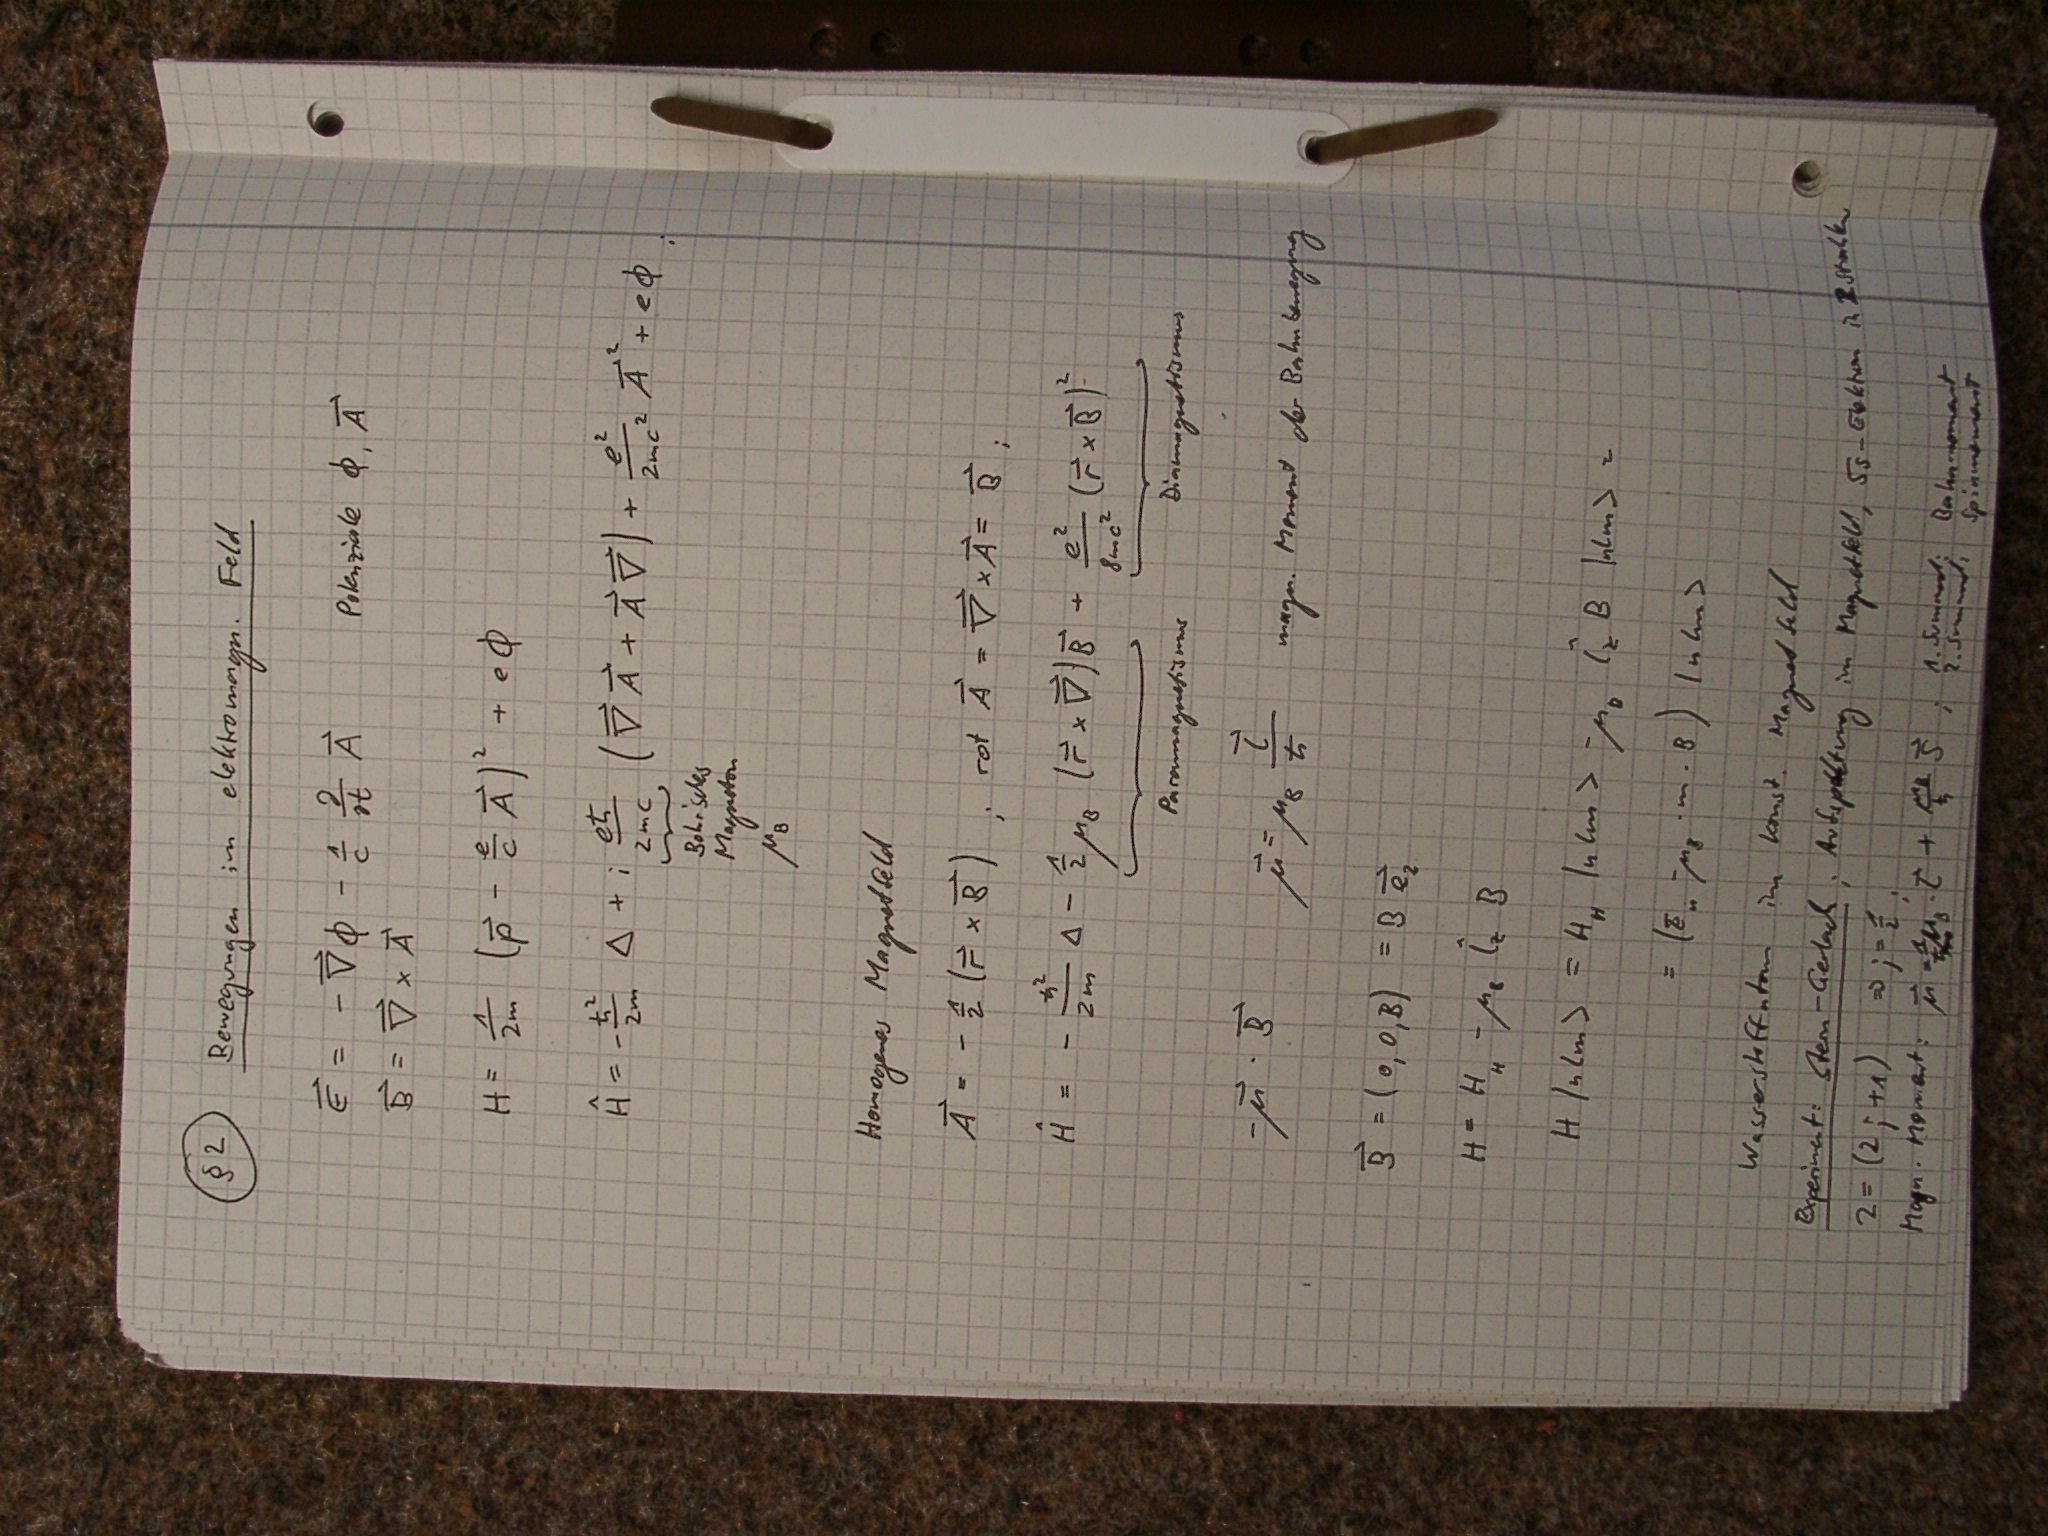 §2 Bewegungen im elektromagn. Feld
E⃗ = - ∇⃗ϕ - 1/c ∂/∂t A⃗ Potenziale ϕ, A⃗
B⃗ = ∇⃗ × A⃗
H = 1/2m (p⃗ - e/c A⃗)² + eϕ
Ĥ = - ħ²/2m Δ + i eħ/2mc (∇⃗A⃗ + A⃗∇⃗) + e²/2mc² A⃗² + eϕ ;
Bohrisches
Magneton
μ_B
Homogenes Magnetfeld
A⃗ = - 1/2 (r⃗ × B⃗) ; rot A⃗ = ∇⃗ × A⃗ = B⃗ ;
Ĥ = - ħ²/2m Δ - 1/2 μ_B (r⃗ × ∇⃗)B⃗ + e²/8mc² (r⃗ × B⃗)²
Paramagnetismus Diamagnetismus
-μ⃗ · B⃗ μ⃗ = μ_B l⃗/ħ magn. Moment der Bahnbewegung
B⃗ = (0,0,B) = B e⃗_z
H = H_H - μ_B l̂_z B
H |nlm> = H_H |nlm> - μ_B l̂_z B |nlm> =
= (E_n - μ_B · m · B) |nlm>
Wasserstoffatom im konst. Magnetfeld
Experiment: Stern-Gerlach; Aufspaltung im Magnetfeld, 5s-Elektron in 2 Strahlen
2 = (2j+1) => j = 1/2 ;
Magn. Moment: μ⃗ = μ_B · l⃗ + μ_B/ħ s⃗ ; 1. Summand: Bahnmoment
2. Summand: Spinmoment